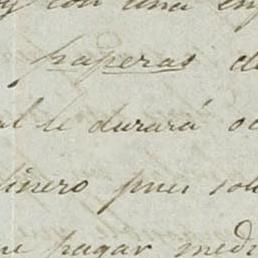 con una en
paperas d
al le durará oc
dinero pues sol
ue pagar medi